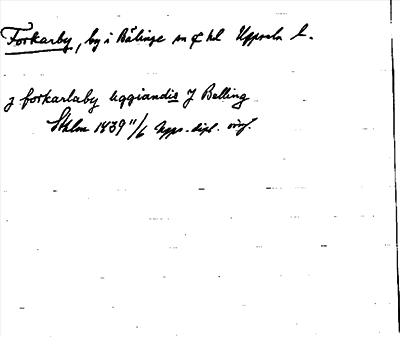 Forkarby, by i Bälinge sn o hd Uppsala l.
j forkarlaby liggiandis j Belling
Sthlm 1439 11/6 Upps. dipl. orig.